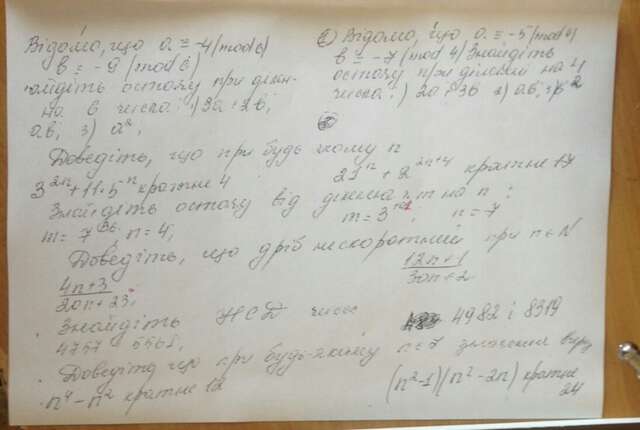 Відомо, що a ≡ -4 (mod 6)
b ≡ -9 (mod 6)
найдіть остачу при ділен-
на 6 числа: 1) 3a + 2b;
ab, 3) a²;
2) Відомо, що a ≡ -5 (mod 4)
b ≡ -7 (mod 4) Знайдіть
остачу при діленні на 4
числа: 1) 2a + 3b 2) ab;
Доведіть, що при будь якому n
3²ⁿ + 11·5ⁿ кратне 4
21ⁿ + 2²ⁿ⁺⁴ кратне 17
Знайдіть остачу від ділення m на n:
m = 7³⁶, n = 4,
n = 7
Доведіть, що дріб нескоротний при n ∈ N
4n+3
20n+23
12n+1
30n+2
Знайдіть НСД чисел
4757 5568,
4982 і 8319
Доведіть що при будь-якому n значення вираз
n⁴ - n² кратне 12
(n²-1)(n²-2n) кратне
24